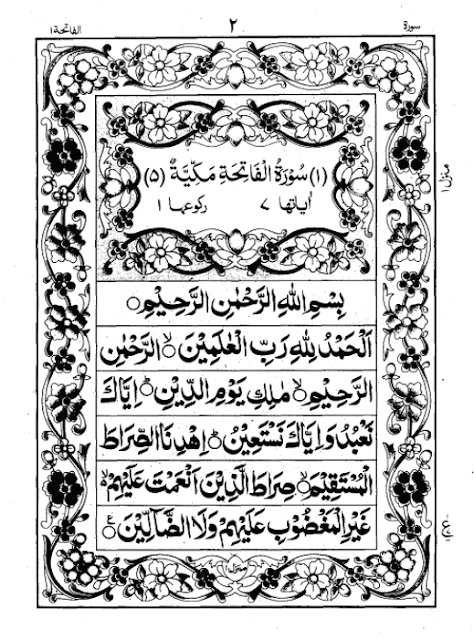 سورة ٢ الفاتحة ١
(١) سُوْرَةُ الْفَاتِحَةِ مَكِّيَّةٌ (٥)
اٰیاتها ۷ ركوعها ١
منزل ١
بِسْمِ اللّٰهِ الرَّحْمٰنِ الرَّحِیْمِ ○
اَلْحَمْدُ لِلّٰهِ رَبِّ الْعٰلَمِیْنَ ○ۙ الرَّحْمٰنِ
الرَّحِیْمِ ○ۙ مٰلِكِ یَوْمِ الدِّیْنِ ○ؕ اِیَّاكَ
نَعْبُدُ وَ اِیَّاكَ نَسْتَعِیْنُ ○ؕ اِهْدِنَا الصِّرَاطَ
الْمُسْتَقِیْمَ ○ۙ صِرَاطَ الَّذِیْنَ اَنْعَمْتَ عَلَیْهِمْ ○ۙ
غَیْرِ الْمَغْضُوْبِ عَلَیْهِمْ وَلَا الضَّآلِّیْنَ ○ع
منزل